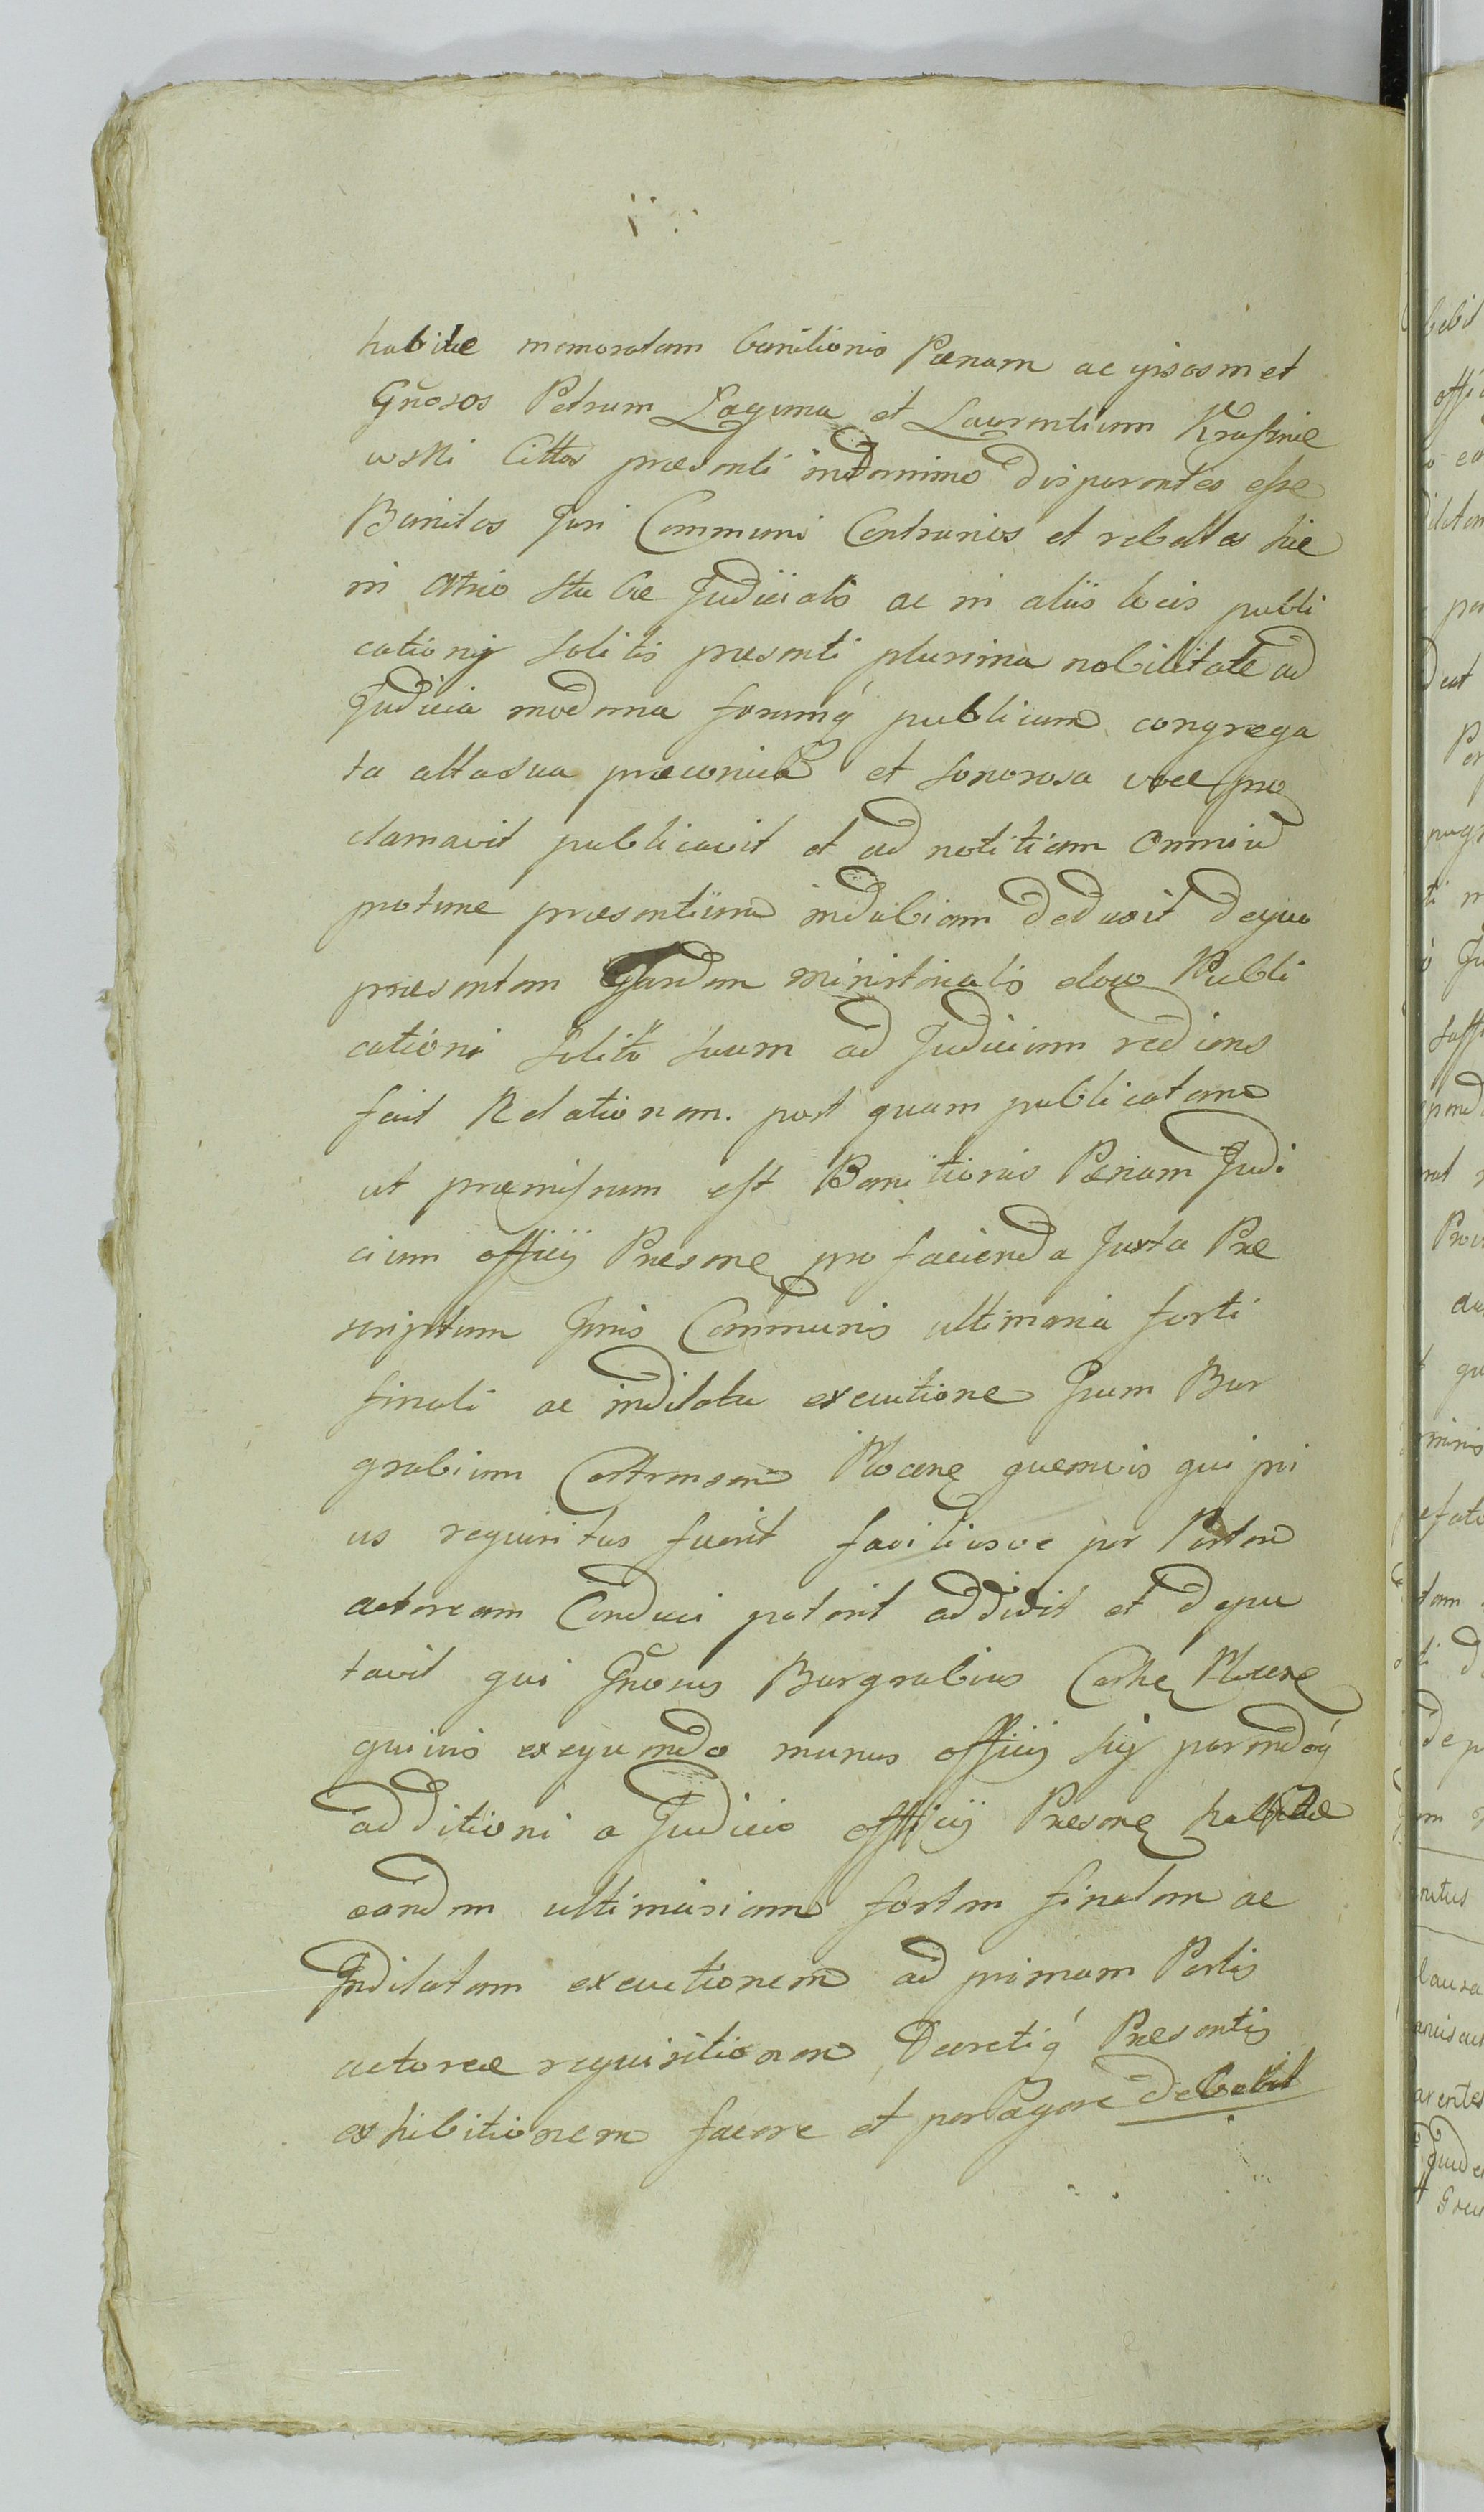 habitae memoratam banitionis Paenam ac ipsosmet
Gnõsos Petrum Laguna et Laurentium Krasznie
wski Cittos praesenti in termino disparentes esse
Banitos Juri Communi Contrarios et rebelles hic
in atrio stubae Judicialis ac in aliis locis publi
cationis solitis praesenti plurima nobilitate ad
Judicia moderna forumq́ publicum congrega
ta alta sua praeconica et sonorosa voce pro
clamavit publicavit et ad notitiam omniu
protunc praesentium indubiam deduxit dequo
praesentem eandem ministerialis eloco Publi
cationi solito suum ad Judicium rediens
fecit Relationem. post quam publicatam
ut praemissum est Banitionis Paenam Judi
cium officij Praesens pro facienda Juxta Prae
scriptum Juris Communis ultimaria forti
finali ac indilata executione Gsum Bur
grabium Castrensem Plocens quemvis qui pri
us requisitus fuerit faciliusve per Partem
actoream Conduci poterit addidit et depu
tavit qui Gnõsus Burgrabius Castr Plocens
quivis exequendo munus officij sui parendoq́
additioni a Judicio officij Praesens habitae
eandem ultimariam fortem finalem ac
Indilatam executionem ad primam Partis
actoreae requisitionem Decretiq́ Praesentis
exhibitionem facere et peragere debebit